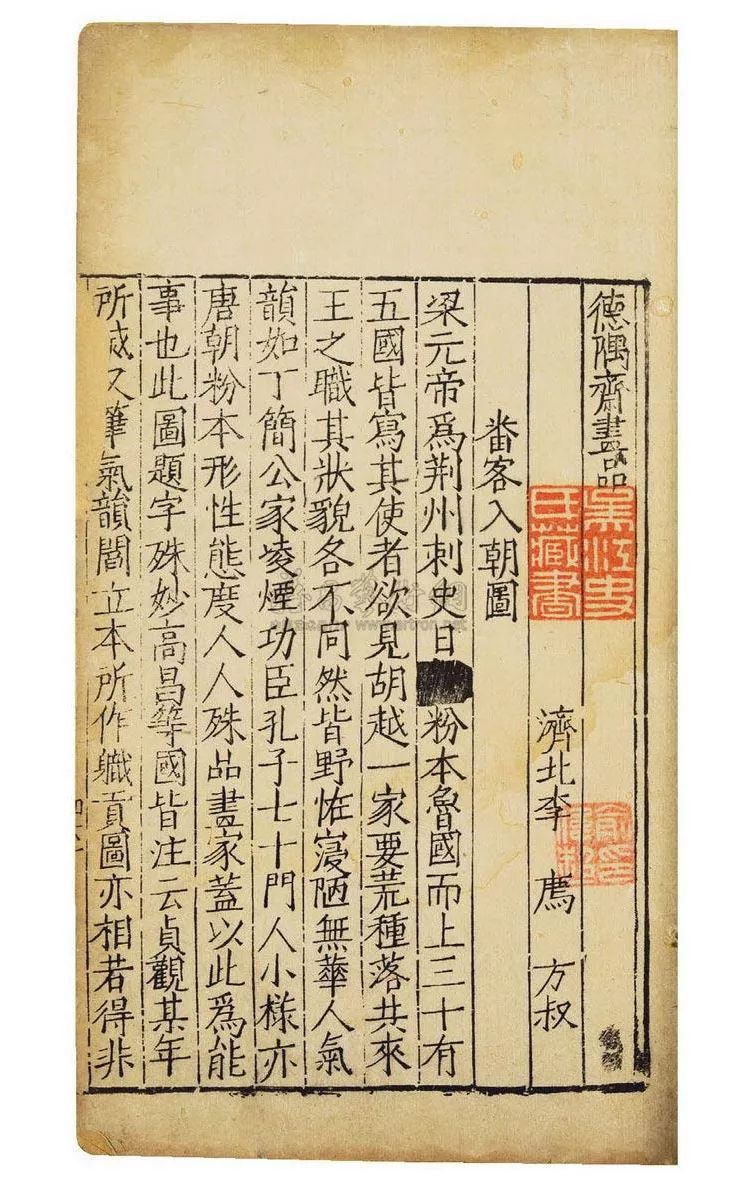 德隅齋畫品
濟北李廌方叔
番客入朝圖
梁元帝為荆州刺史日粉本魯國而上三十有
五國皆寫其使者欲見胡越一家要荒種落共來
王之職其狀貌各不同然皆野恠寢陋無華人氣
韻如丁簡公家凌煙功臣孔子七十門人小様亦
唐朝粉本形性態度人人殊品畫家蓋以此爲能
事也此圖題字殊妙高昌等國皆注云貞觀某年
所成又筆氣韻閻立本所作職貢圖亦相若得非
氏藏書